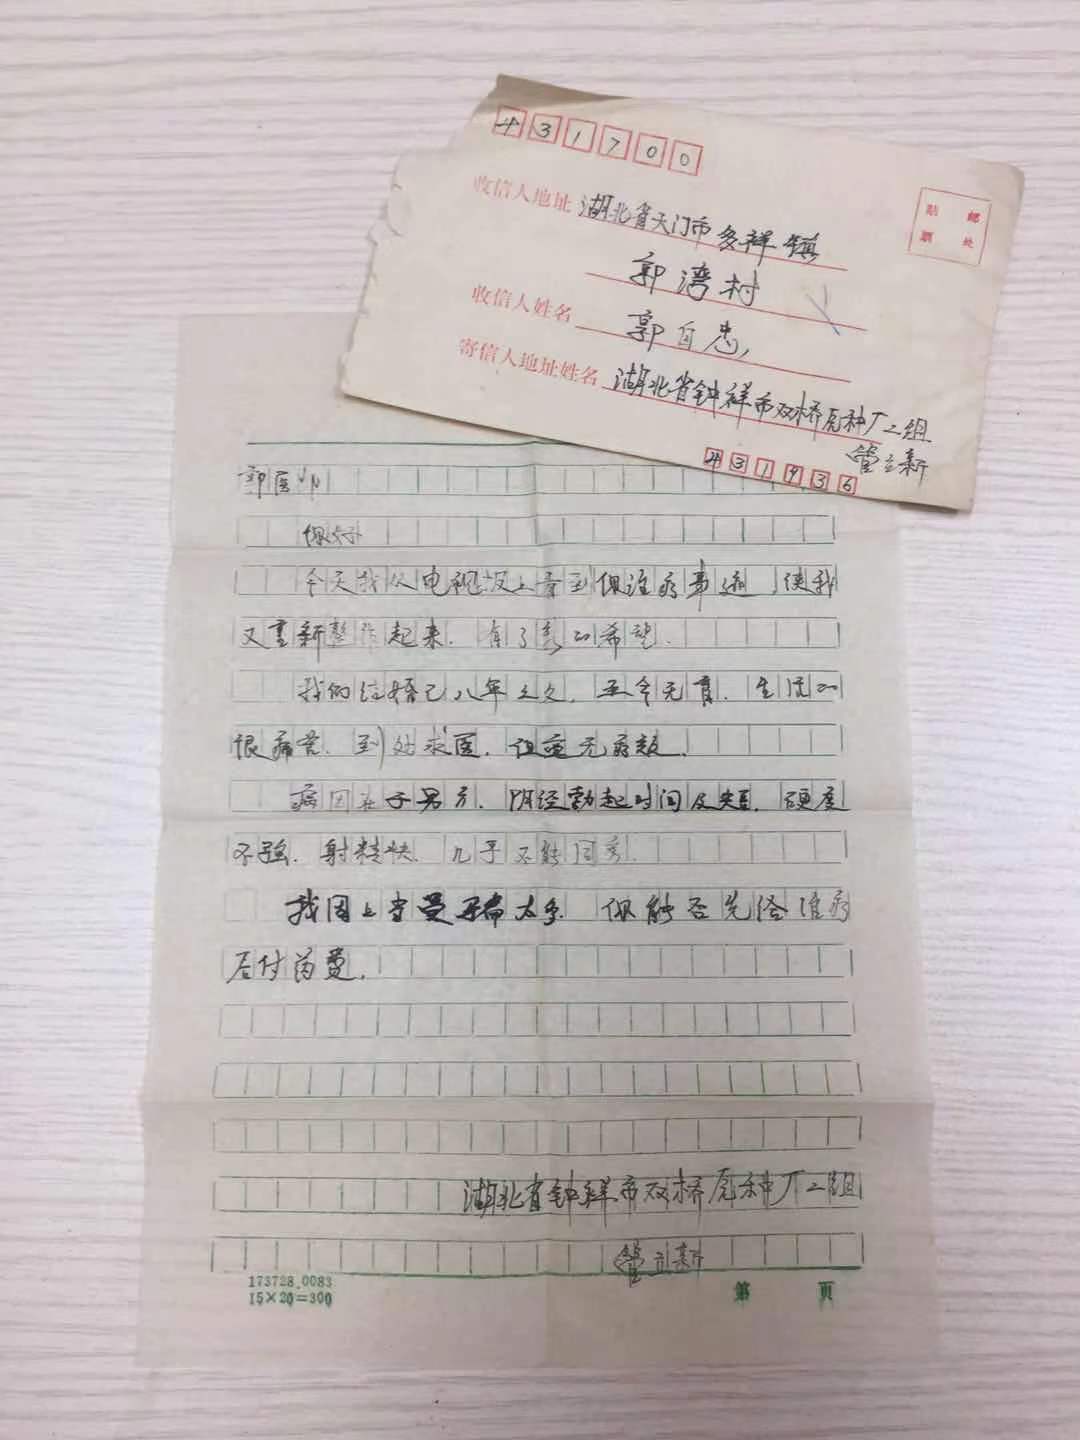 431700
贴 邮
票 处
收信人地址 湖北省天门市多祥镇
郭湾村
收信人姓名 郭自忠,
寄信人地址姓名 湖北省钟祥市双桥原种厂二组
管立新
431936
郭医师
你好
今天我从电视报上看到你治病事迹,使我
又重新整作起来.有了新的希望.
我们结婚已八年之久,至今无育.生活的
很痛苦.到处求医.但毫无疗效.
病因在于男方.阴经勃起时间及短.硬度
不强.射精快.几乎不能同房.
我因上当受骗太多.你能否先给治病
后付药费.
湖北省钟祥市双桥原种厂二组
管立新
173728.0083
15×20=300
第 页